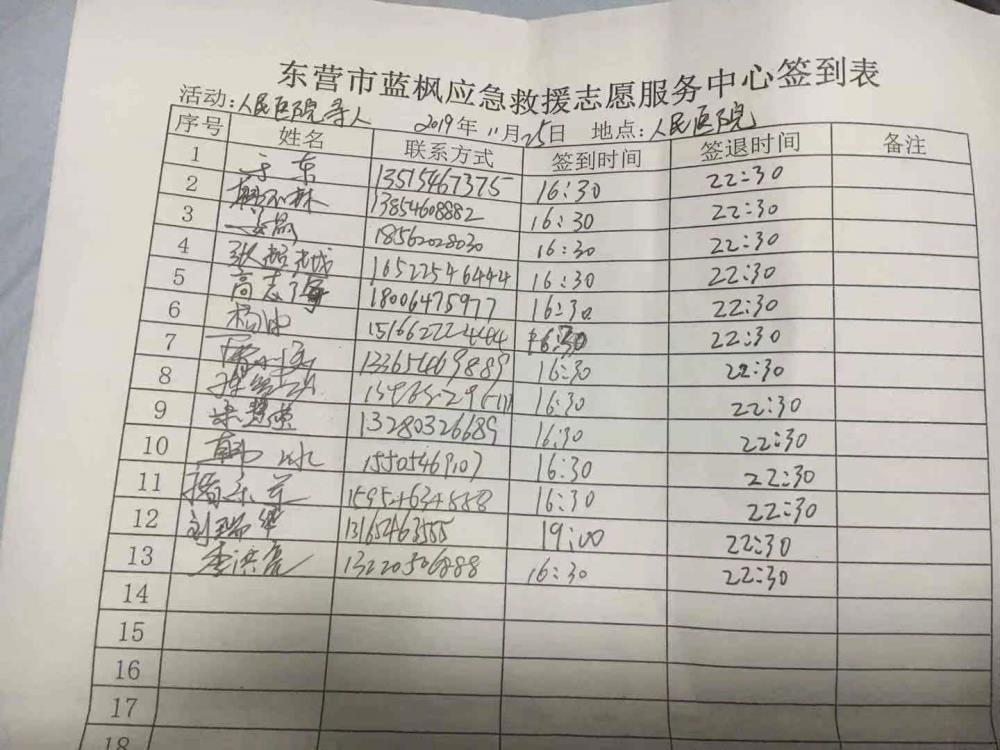 东营市蓝枫应急救援志愿服务中心签到表
活动：人民医院寻人 2019年11月25日 地点：人民医院
序号 姓名 联系方式 签到时间 签退时间 备注
1 于东 13515467375 16:30 22:30
2 13854608882 16:30 22:30
3 18562028030 16:30 22:30
4 16522546444 16:30 22:30
5 高志 18006475977 16:30 22:30
6 杨 15166222444 16:30 22:30
7 13365469889 16:30 22:30
8 16:30 22:30
9 13280326689 16:30 22:30
10 韩冰 15505469107 16:30 22:30
11 16:30 22:30
12 刘 13165463555 19:00 22:30
13 李洪亮 13220506888 16:30 22:30
14
15
16
17
18